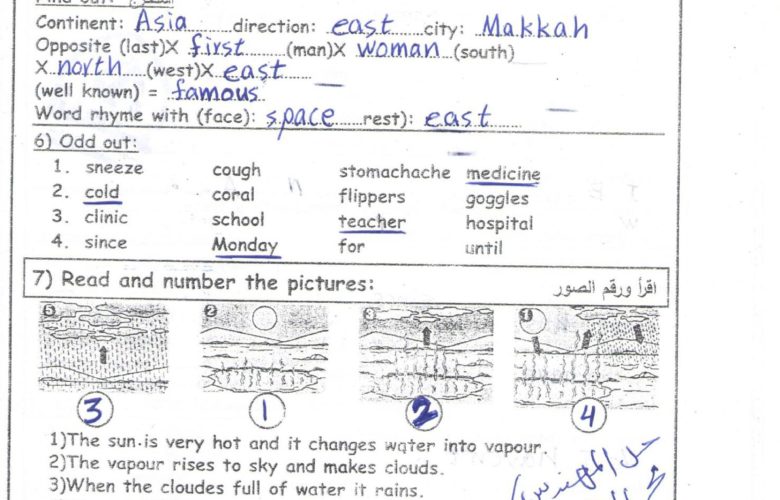 Continent: Asia direction: east city: Makkah
Opposite (last)X first (man)X woman (south)
X north (west)X east
(well known) = famous
Word rhyme with (face): space rest): east
6) Odd out:
1. sneeze cough stomachache medicine
2. cold coral flippers goggles
3. clinic school teacher hospital
4. since Monday for until
7) Read and number the pictures: اقرأ ورقم الصور
5 2 3 1
3 1 2 4
1)The sun is very hot and it changes water into vapour.
2)The vapour rises to sky and makes clouds.
3)When the cloudes full of water it rains.